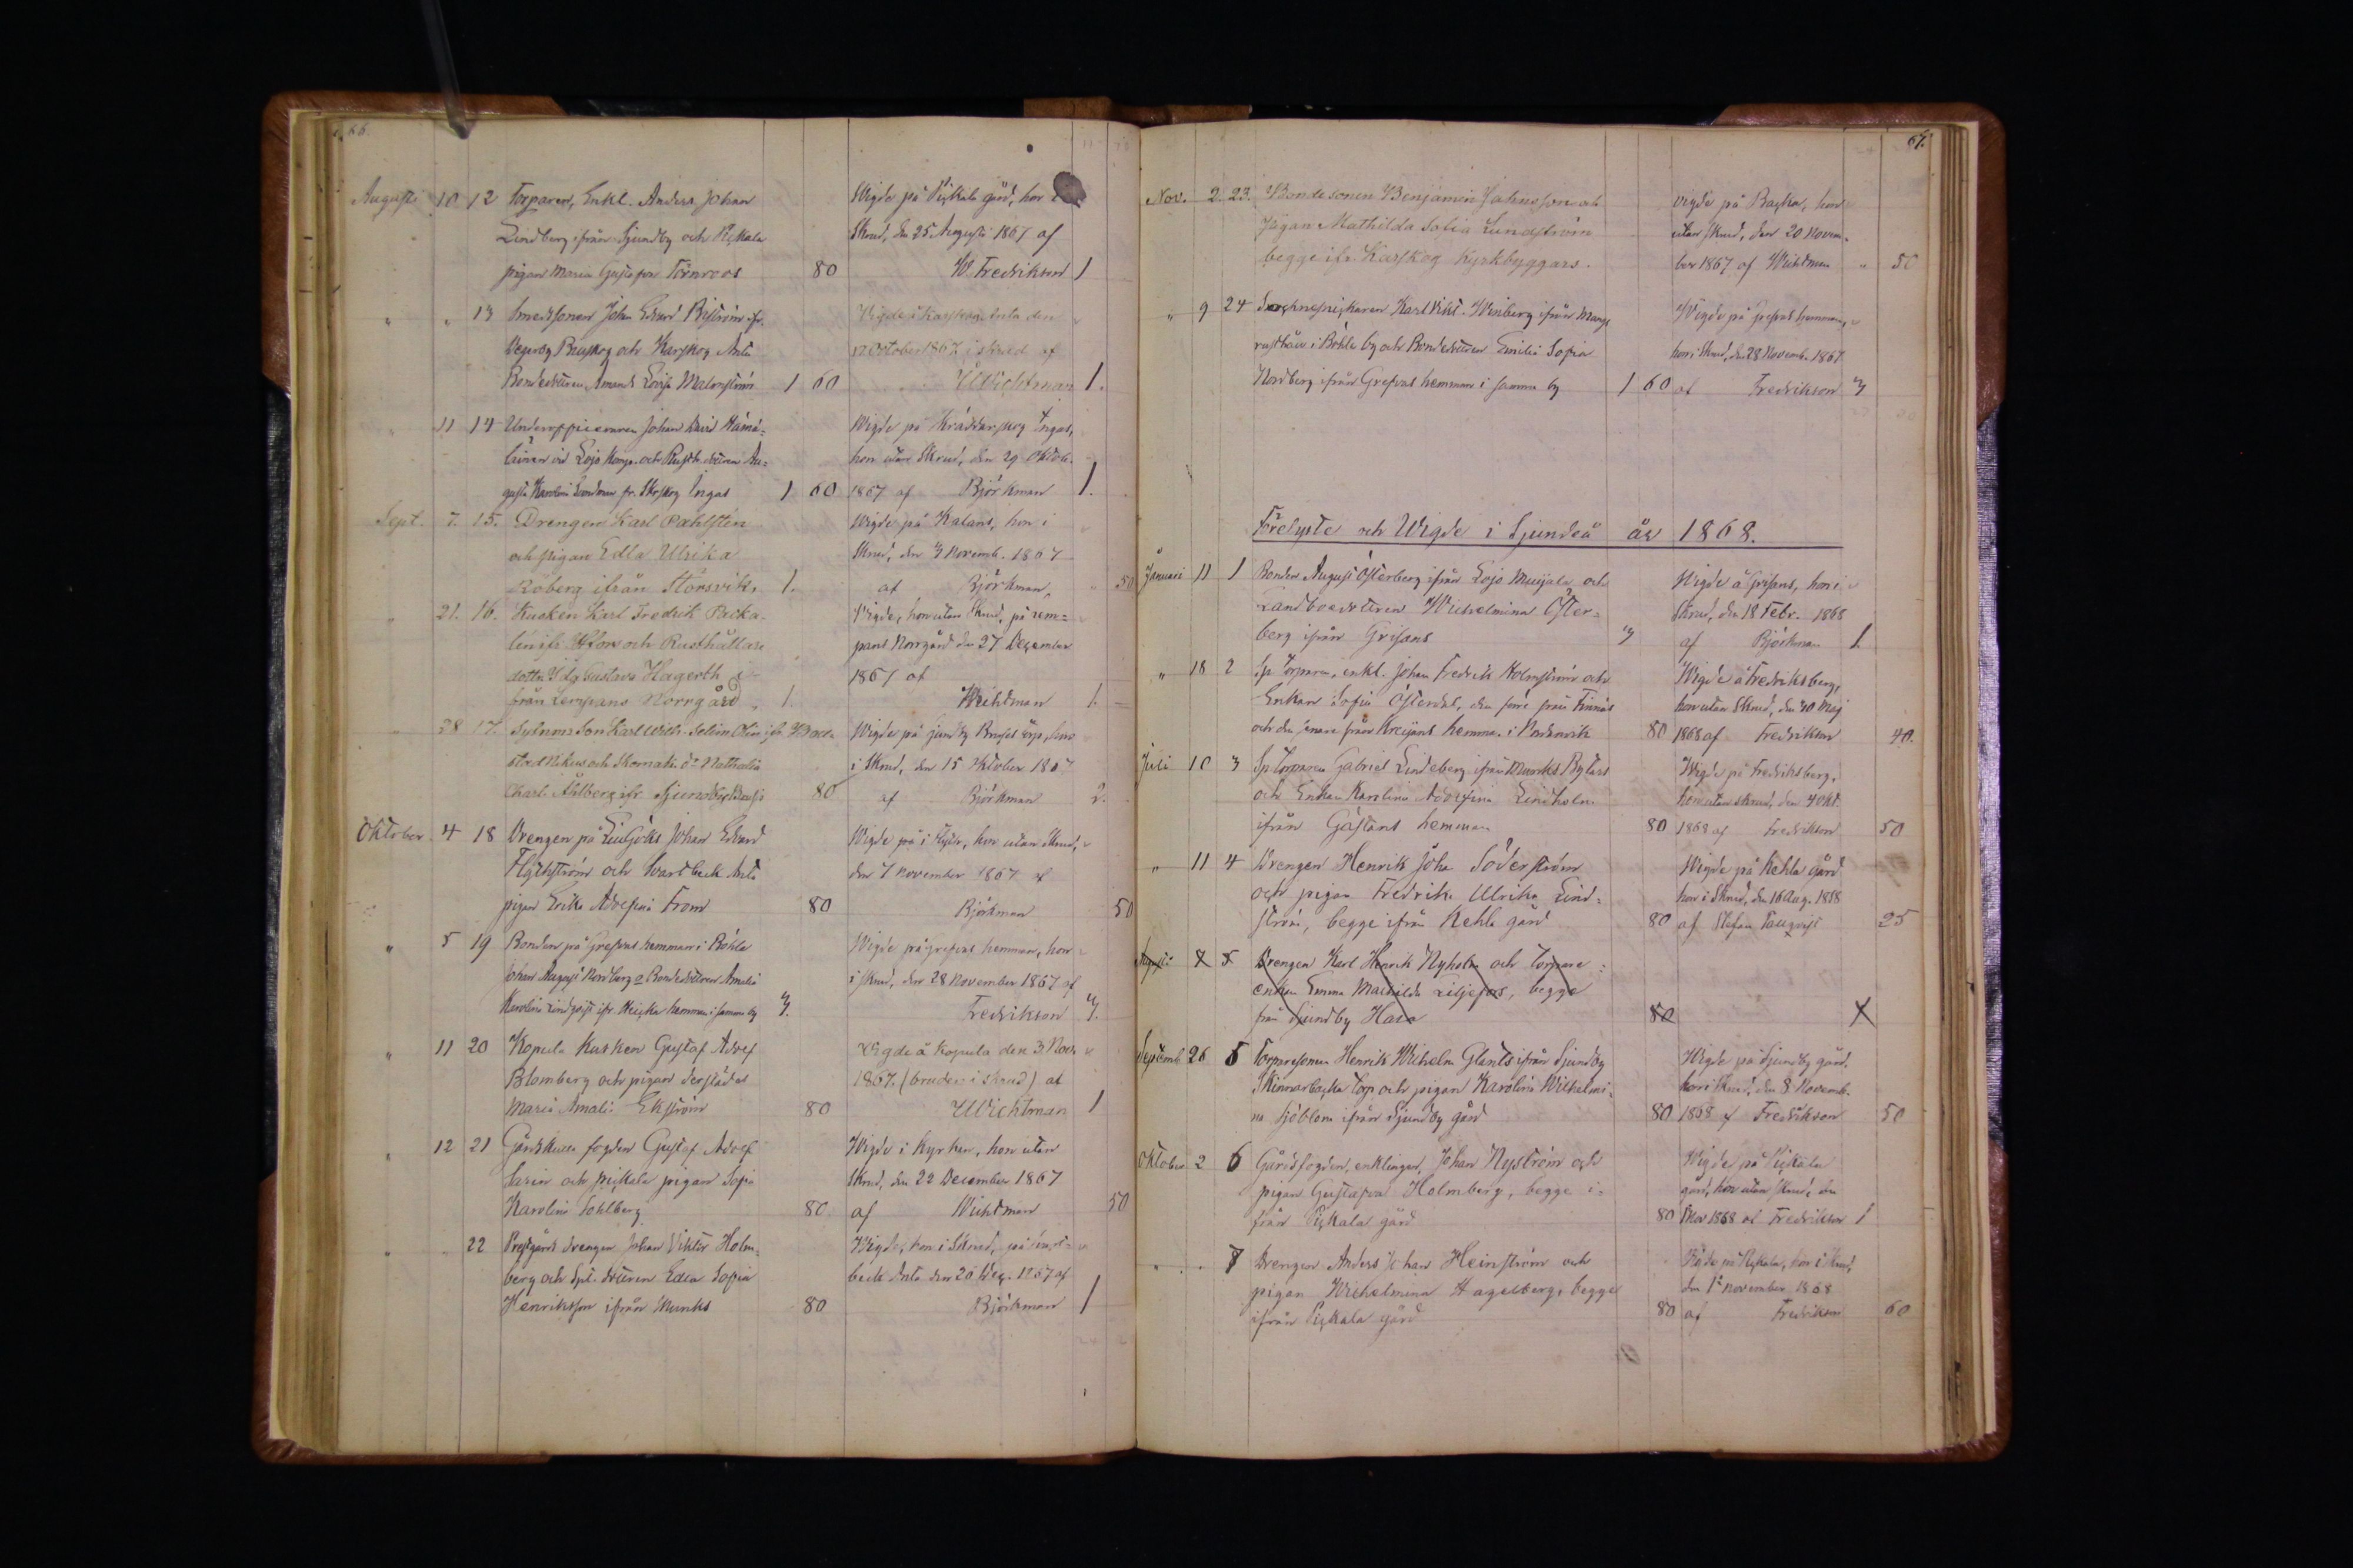 66.
Augusti 10 12 Torparen, Enkl. Anders Johan
Lindberg ifrån Sjundby och Pickala
pigan Maria Gustafva Törnroos 80
Wigde på Pickala gård, hon
Skrud, den 25 Augusti 1867 af
W. Fredrikson 1
" " 13 Smedsonen Johan Edvard
och Karskog
Bondedottren Amanda Lovisa Malmström 1 60
Wigde i Karskog den
October 1867 i skrud af
Wichtman 1.
" 11 14 Underofficeraren Johan
vid Lojo och Rusth. dottren Au=
gusta Karolina fr. Ingas 1 60
Wigde på Kräddarskog Ingas,
hon utan Skrud, den 29 Oktob.
1867 af Björkman 1.
Sept. 7. 15. Drengen Karl Pahlsten
och pigan Edla Ulrika
Roberg ifrån Storsvik. 1.
Wigde på Kalans, hon i
Skrud, den 3 Novemb. 1867
af Björkman " 50
" 21. 16. Kusken Karl Fredrik Packa-
len ifr. och Rusthållare
dottr. Gustava Hagerth i-
från Lempans Norrgård 1.
Wigde, hon utan Skrud, på Lem=
pans Norrgård den 27 December
1867 af
Wichtman 1.
" 28 17. Sonen Karl Wilh. Selim
och Nathalia
Charl. Åhlberg ifr. Sjundby 80
Wigde på Sjundby torp, hon
i Skrud, den 15 Oktober 1867
af Björkman 2.
Oktober 4 18 Drengen på Johan Edvard
Flythström och Svartbeck
pigan Erika Adolfina From 80
Wigde på i, hon utan Skrud,
den 7 November 1867 af
Björkman 50
" 5 19 Bonden på Grefvas hemman i Böhle
Johan August Nordberg o Bondedottren Amalia
Karolina Lindqvist ifr. hemman i samma by 3.
Wigde på Grefvas hemman, hon
i skrud, den 28 November 1867 af
Fredrikson 3.
" 11 20 Kopula Kusken Gustaf Adolf
Blomberg och pigan derstädes
Maria Amalia Ekström 80
Wigde å Kopula den 3 Nov.
1867. (bruden i skrud) af
Wichtman 1
" 12 21 Gårds fogden Gustaf Adolf
Sarin och Pickala pigan Sofia
Karolina Sohlberg 80
Wigde i Kyrkan, hon utan
Skrud, den 22 December 1867
af Wichtman 50
" " 22 Prestgårds drengen Johan Viktor Holm=
berg och dottren Edla Sofia
Henriksson ifrån Munks 80
Wigde, hon i Skrud, på Svart-
beck den 26 Dec. 1867 af
Björkman 1
67.
Nov. 2. 23. Bondesonen Benjamin Johnsson och
Pigan Mathilda Sofia Lundström
begge ifr. Karskog Kyrkbyggars.
vigde på Backa, hon
utan skrud, den 20 Novem-
ber 1867 af Wichtman " 50
" 9 24 Karl Vikt. Winberg ifrån
rusthåll i Böhle by och Bondedottren Emilia Sofia
Nordberg ifrån Grefvas hemman i samma by 1 60
Wigde på Grefvas hemman,
hon i Skrud, den 28 Novemb. 1867
af Fredrikson 3
Förelyste och Wigde i Sjundeå år 1868.
Januari 11 1 Bonden August Österberg ifrån Lojo Muijala och
Landboedottren Wilhelmina Öster=
berg ifrån Grisans 3
Wigde å Grisans, hon i
Skrud, den 18 Febr. 1868
af Björkman 1.
" 18 2 Sp. Torparen, enkl. Johan Fredrik Holmström och
Enkan Sofia Österdal, den förre från Finnäs
och den senare från hemman i 80
Wigde å Fredriksberg,
hon utan Skrud, den 10 Maj
1868 af Fredrikson 40.
Juli 10 3 Sp. Torparen Gabriel Lindeberg ifrån Munks
och Enkan Karolina Adolfina Lindholm
ifrån Gåstans hemman 80
Wigde på Fredriksberg,
hon utan skrud, den 4 Okt.
1868 af Fredrikson 50
" 11 4 Drengen Henrik Joha Söderström
och pigan Fredrika Ulrika Lind=
ström, begge ifrån Kehla gård 80
Wigde på Kehla gård
hon i Skrud, den 16 Aug. 1868
af Stefan Tallqvist 25
Augusti 8 5 Drengen Karl Henrik Nyholm och Torpare=
enkan Emma Mathilda Liljefors, begge
från Sjundby 80
Septemb 26 5 Torparesonen Henrik Wilhelm Glants ifrån Sjundby
Skinnarbacka torp och pigan Karolina Wilhelmi-
na Sjöblom ifrån Sjundby gård 80
Wigde på Sjundby gård,
hon i Skrud, den 8 Novemb.
1868 af Fredrikson 50
Oktober 2 6 Gårdsfogden, enklingen, Johan Nyström och
pigan Gustafva Holmberg, begge i=
från Pickala gård 80
Wigde på Pickala
gård, hon utan skrud, den
1 Nov 1868 af Fredrikson 1
" " 7 Drengen Anders Johan Heinström och
pigan Wilhelmina Hagelberg, begge
ifrån Pickala gård 80
Wigde på Pickala, hon i skrud,
den 1 November 1868
af Fredrikson 60